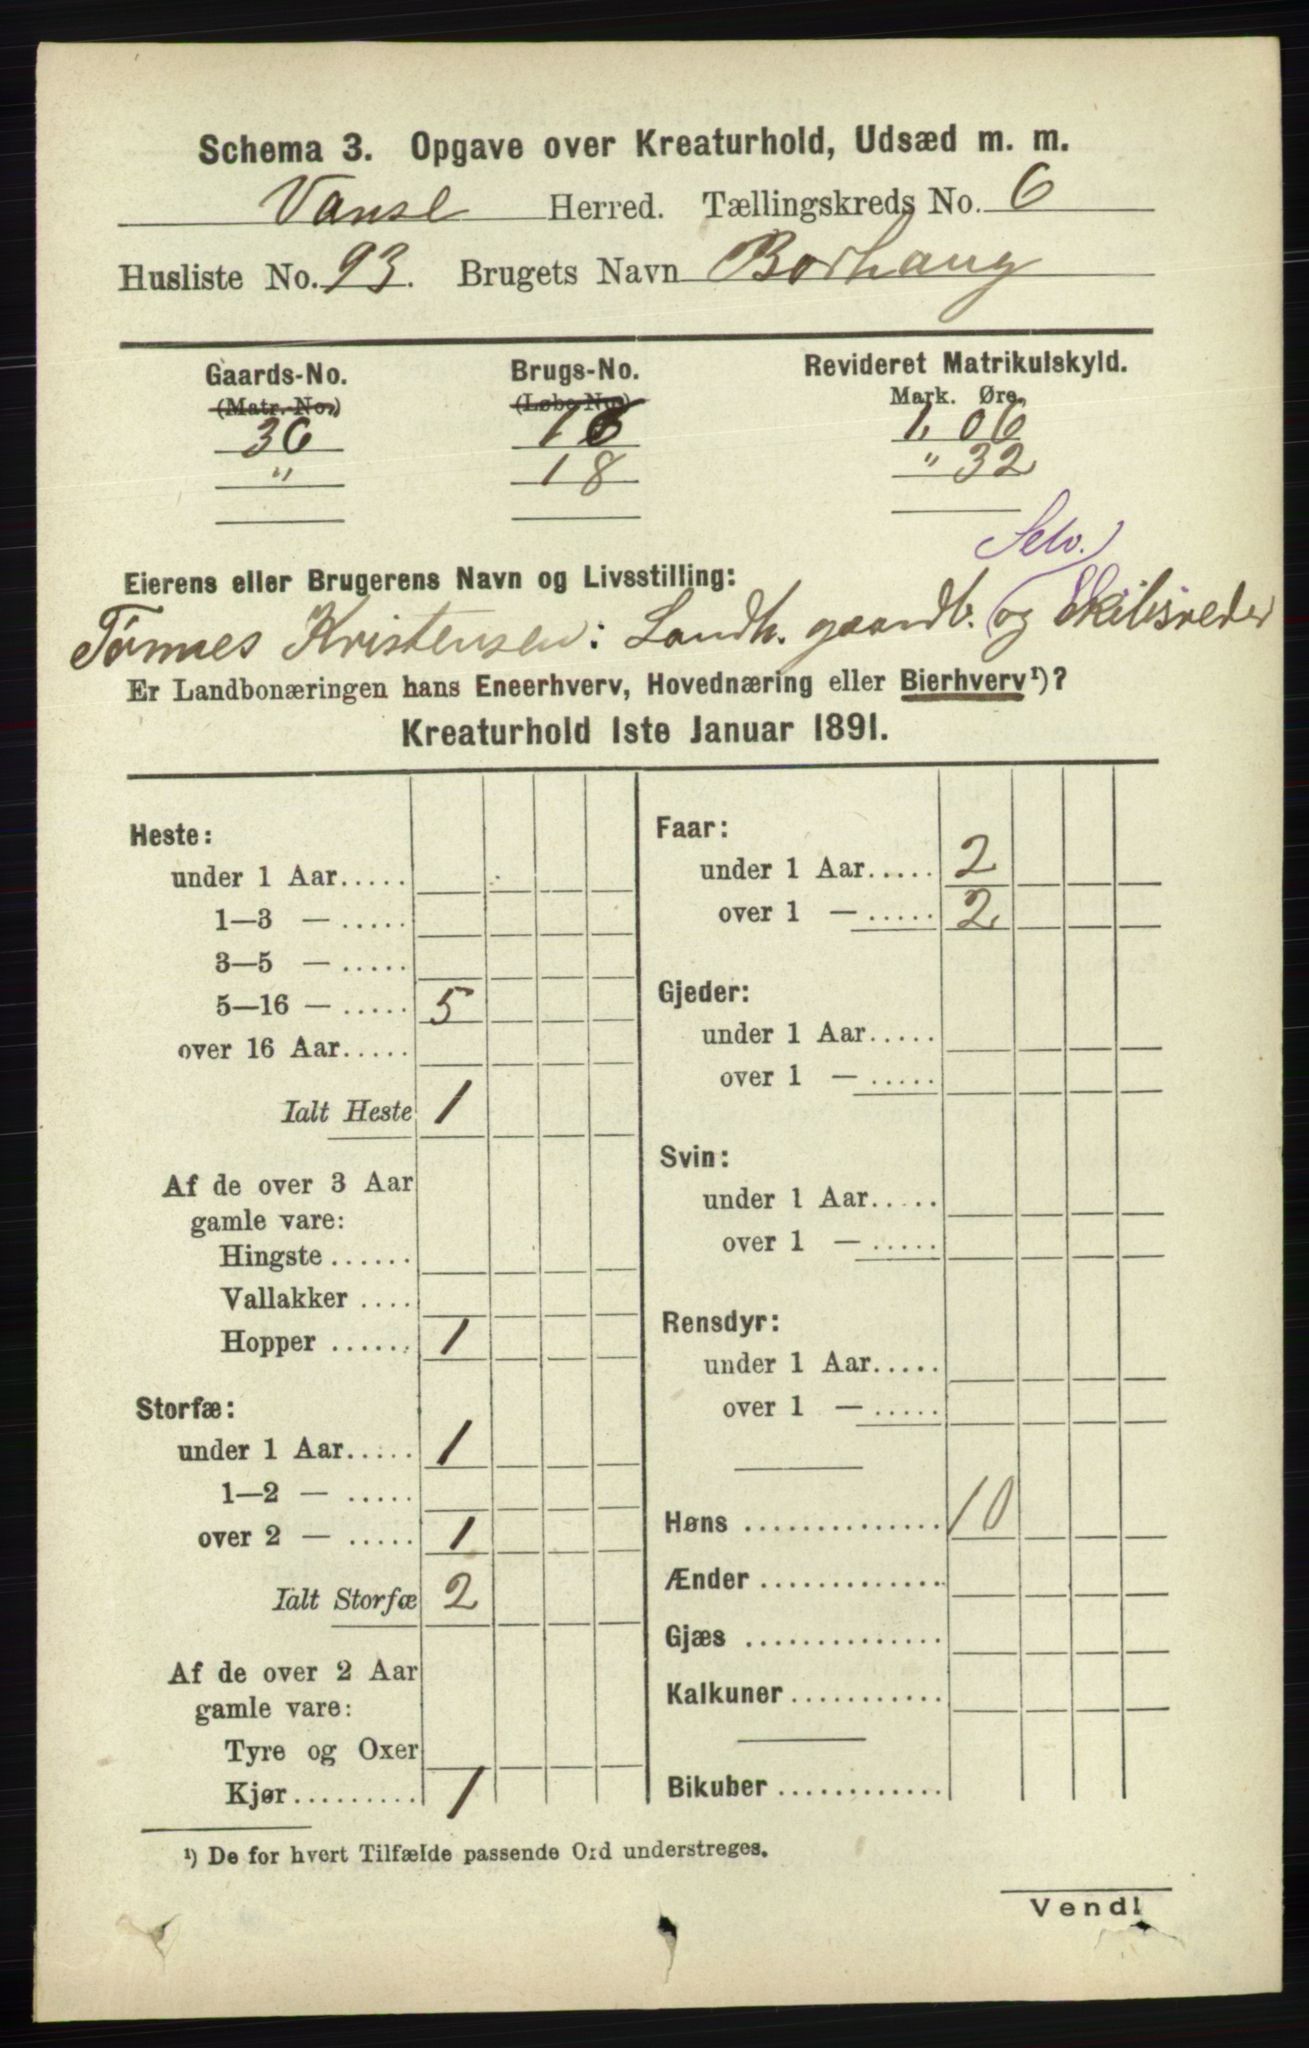 Schema 3. Opgave over Kreaturhold, Udsæd m. m.
Vanse Herred. Tællingskreds No. 6
Husliste No. 93. Brugets Navn Borhaug
Gaards-No. Brugs-No. Revideret Matrikulskyld.
(Matr. No.) (Løbe No.) Mark. Øre.
36 16 1, 06
" 18 " 32
Selv.
Eierens eller Brugerens Navn og Livsstilling:
Tørnes Kristensen: Landh. gaardb. og Skibsreder
Er Landbonæringen hans Eneerhverv, Hovednæring eller Bierhverv¹)?
Kreaturhold 1ste Januar 1891.
Heste:
under 1 Aar.....
1—3 — .....
3—5 — .....
5—16 — ..... 5
over 16 Aar.....
Ialt Heste 1
Af de over 3 Aar
gamle vare:
Hingste ......
Vallakker ....
Hopper ...... 1
Storfæ:
under 1 Aar..... 1
1—2 — .....
over 2 — ..... 1
Ialt Storfæ 2
Af de over 2 Aar
gamle vare:
Tyre og Oxer
Kjør......... 1
Faar:
under 1 Aar..... 2
over 1 — ..... 2
Gjeder:
under 1 Aar.....
over 1 — .....
Svin:
under 1 Aar.....
over 1 — .....
Rensdyr:
under 1 Aar.....
over 1 — .....
Høns .............. 10
Ænder .............
Gjæs ..............
Kalkuner...........
Bikuber ............
¹) De for hvert Tilfælde passende Ord understreges.
Vend!